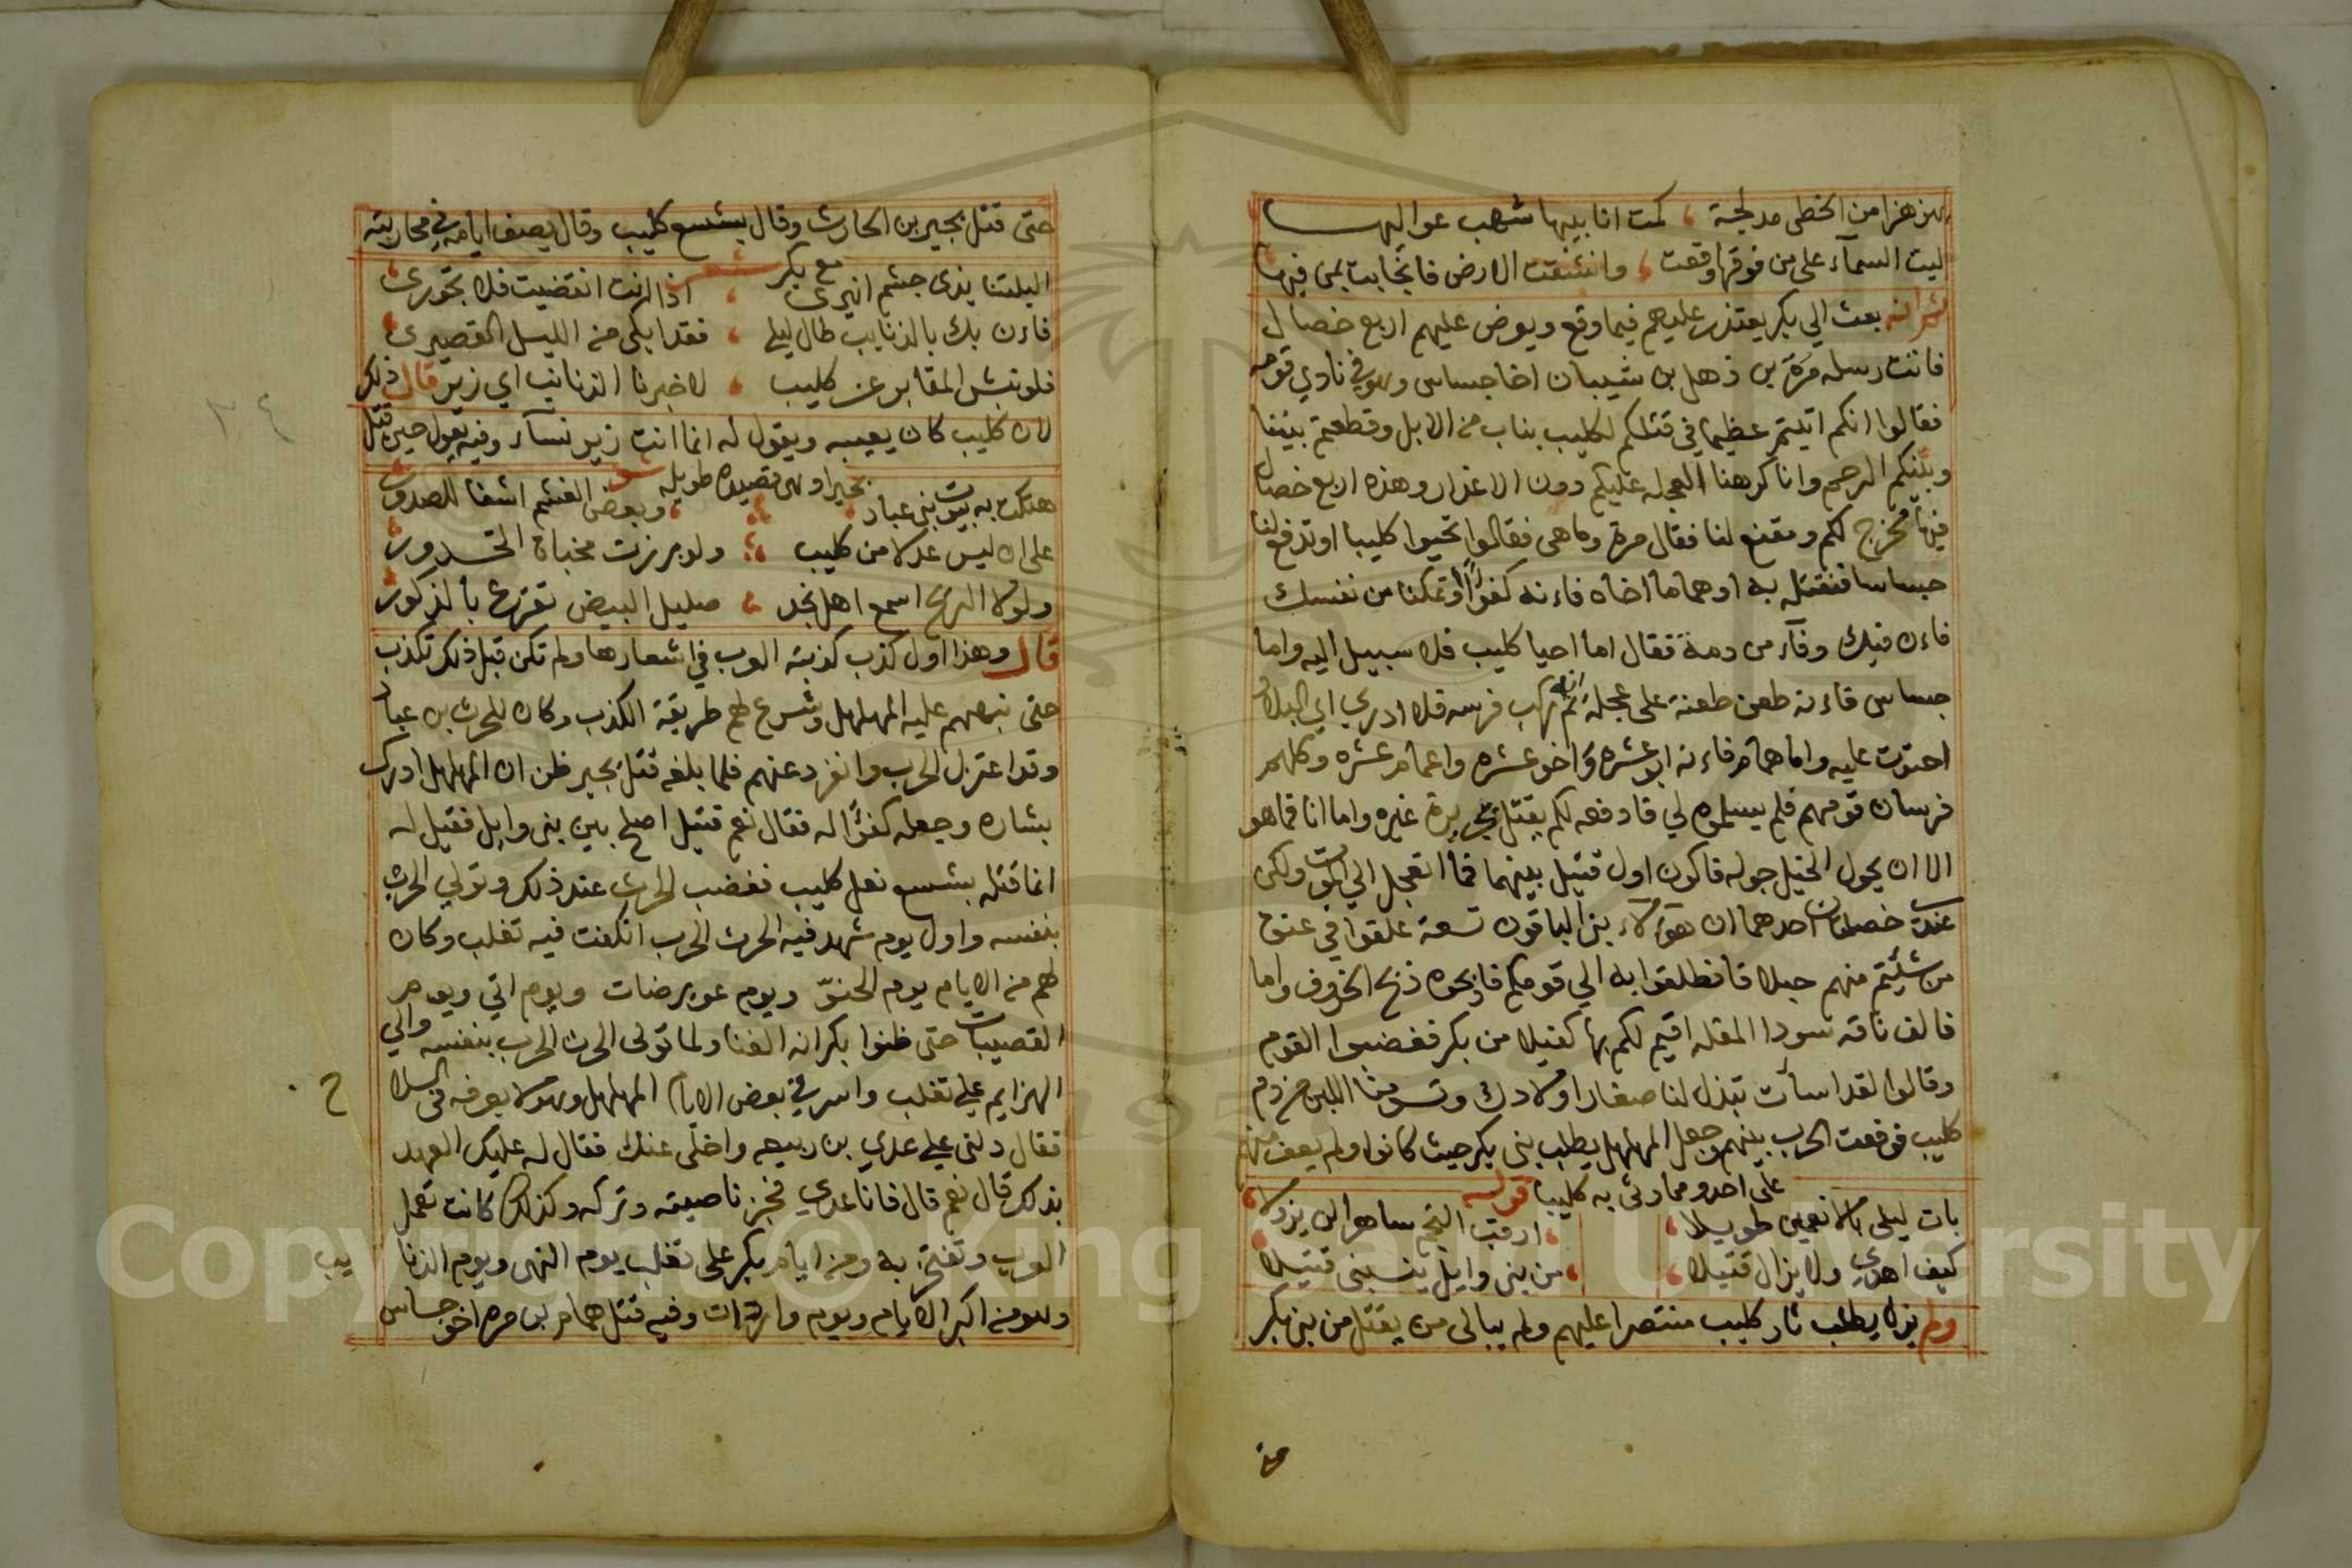 يهز هزا من الخطى مدلجة ، كمت انا بيبها شهب عواليها
ليت السمآء على من فوقها وقعت ، وانشقت الارض فانجابت بمن فيها
ثم انه بعث الي بكر يعتذر عليهم فيما وقع ويعرض عليهم اربع خصال
فاتت رسله مرة بن ذهل بن شيبان اخا جساس وهو في نادي قومه
فقالوا انكم اتيتم عظيما في قتلكم لكليب بناب من الابل وقطعتم بيننا
وبينكم الرحم وانا كرهنا العجلة عليكم دون الاعذار وهذه اربع خصال
فيها مخرج لكم ومقنع لنا فقال مرة وما هي فقالوا تحيوا كليبا او تدفع لنا
جساسا فنقتله به او هماما اخاه فانه كفوا او تمكنا من نفسك
فان فيك وفآء من دمه فقال اما احيا كليب فلا سبيل اليه واما
جساس فانه طعن طعنة على عجلة ثم انه ركب فرسه فلا ادري اي البلاد
احتوت عليه واما همام فانه ابو عشره واخو عشره واعمام عشره وكلهم
فرسان قومهم فلم يسلموه لي فادفعه لكم بقتل بجريرة غيره واما انا فما هو
الا ان يحول الخيل جوله فاكون اول قتيل بينهما فما اتعجل الي الموت ولكن
عندي خصلتان احدهما ان هولاء بني الباقون تسعة علقوا في عنق
من شئتم منهم حبلا فانطلقوا به الي قومكم فاذبحوه ذبح الخروف واما
فالف ناقه سودا المقله اقيم لكم بها كفيلا من بكر فغضبوا القوم
وقالوا لقد اسآت تبذل لنا صغار اولادك وتسومنا اللبن من دم
كليب فوقعت الحرب بينهم وجعل المهلهل يطلب بني بكر حيث كانوا ولم يعف منهم
على احد ومما رثى به كليبا قوله
بات ليلى بالانعمين طويلا ، ارقب النجم ساهرا لن يزولا
كيف اهدي ولا يزال قتيلا ، من بني وايل ينسبني قتيلا
ولم يزل يطلب ثار كليب منتصرا عليهم ولم يبالى من يقتل من بني بكر
حتى
حتى قتل بجير بن الحارث وقال بشسع كليب وقال يصف ايامه في محاربته
مع بكر شعر
اليلتنا بذى جشم انيرى ، اذا انت انقضيت فلا تحورى
فان بك بالذنايب طال ليلي ، فقد ابكى من الليل القصيرى
فلو نبش المقابر عن كليب ، لاخبرنا الذنايب اي زير قال ذلك
لان كليب كان يعيبه ويقول له انما انت زير نسآء وفيه يقول حين قتل
بجيرا وهى قصيده طويله شعر
هتكت به بيوت بنى عباد ، وبعض الغشم اشفا للصدور
على ان ليس عدلا من كليب ، ولو برزت مخباة الخدور
ولولا الريح اسمع اهل نجد ، صليل البيض تقرع بالذكور
قال وهذا اول كذب كذبته العرب في اشعارها ولم تكن قبل ذلك تكذب
حتى نبههم عليه المهلهل وشرع لهم طريقة الكذب وكان للحرث بن عباد
وقد اعتزل الحرب وانفرد عنهم فلما بلغه قتل بجير ظن ان المهلهل ادرك
بثاره وجعله كفوا له فقال نعم قتيل اصلح بين بنى وايل فقيل له
انما قتله بشسع نعل كليب فغضب الحرث عند ذلك وتولي الحرب
بنفسه واول يوم شهد فيه الحرث الحرب انكفت فيه تغلب وكان
لهم من الايام يوم الحنو ويوم عويرضات ويوم اتي ويوم
القصيبات حتى ظنوا بكر انه الفنا ولما تولى الحرث الحرب بنفسه والي
الهزايم علي تغلب واسر في بعض الايام المهلهل وهو لا يعرفه في السلاح
فقال دلنى علي عدي بن ربيعه واخلى عنك فقال له عليك العهد
بذلك قال نعم قال فانا عدي فجز ناصيته وتركه وكذلك كانت تفعل
العرب وتفتخر به ومن ايام بكر على تغلب يوم النهى ويوم الذنايب
وهو من اكبر الايام ويوم واردات وفيه قتل همام بن مره اخو جساس
Copyright © King Saud University
1957